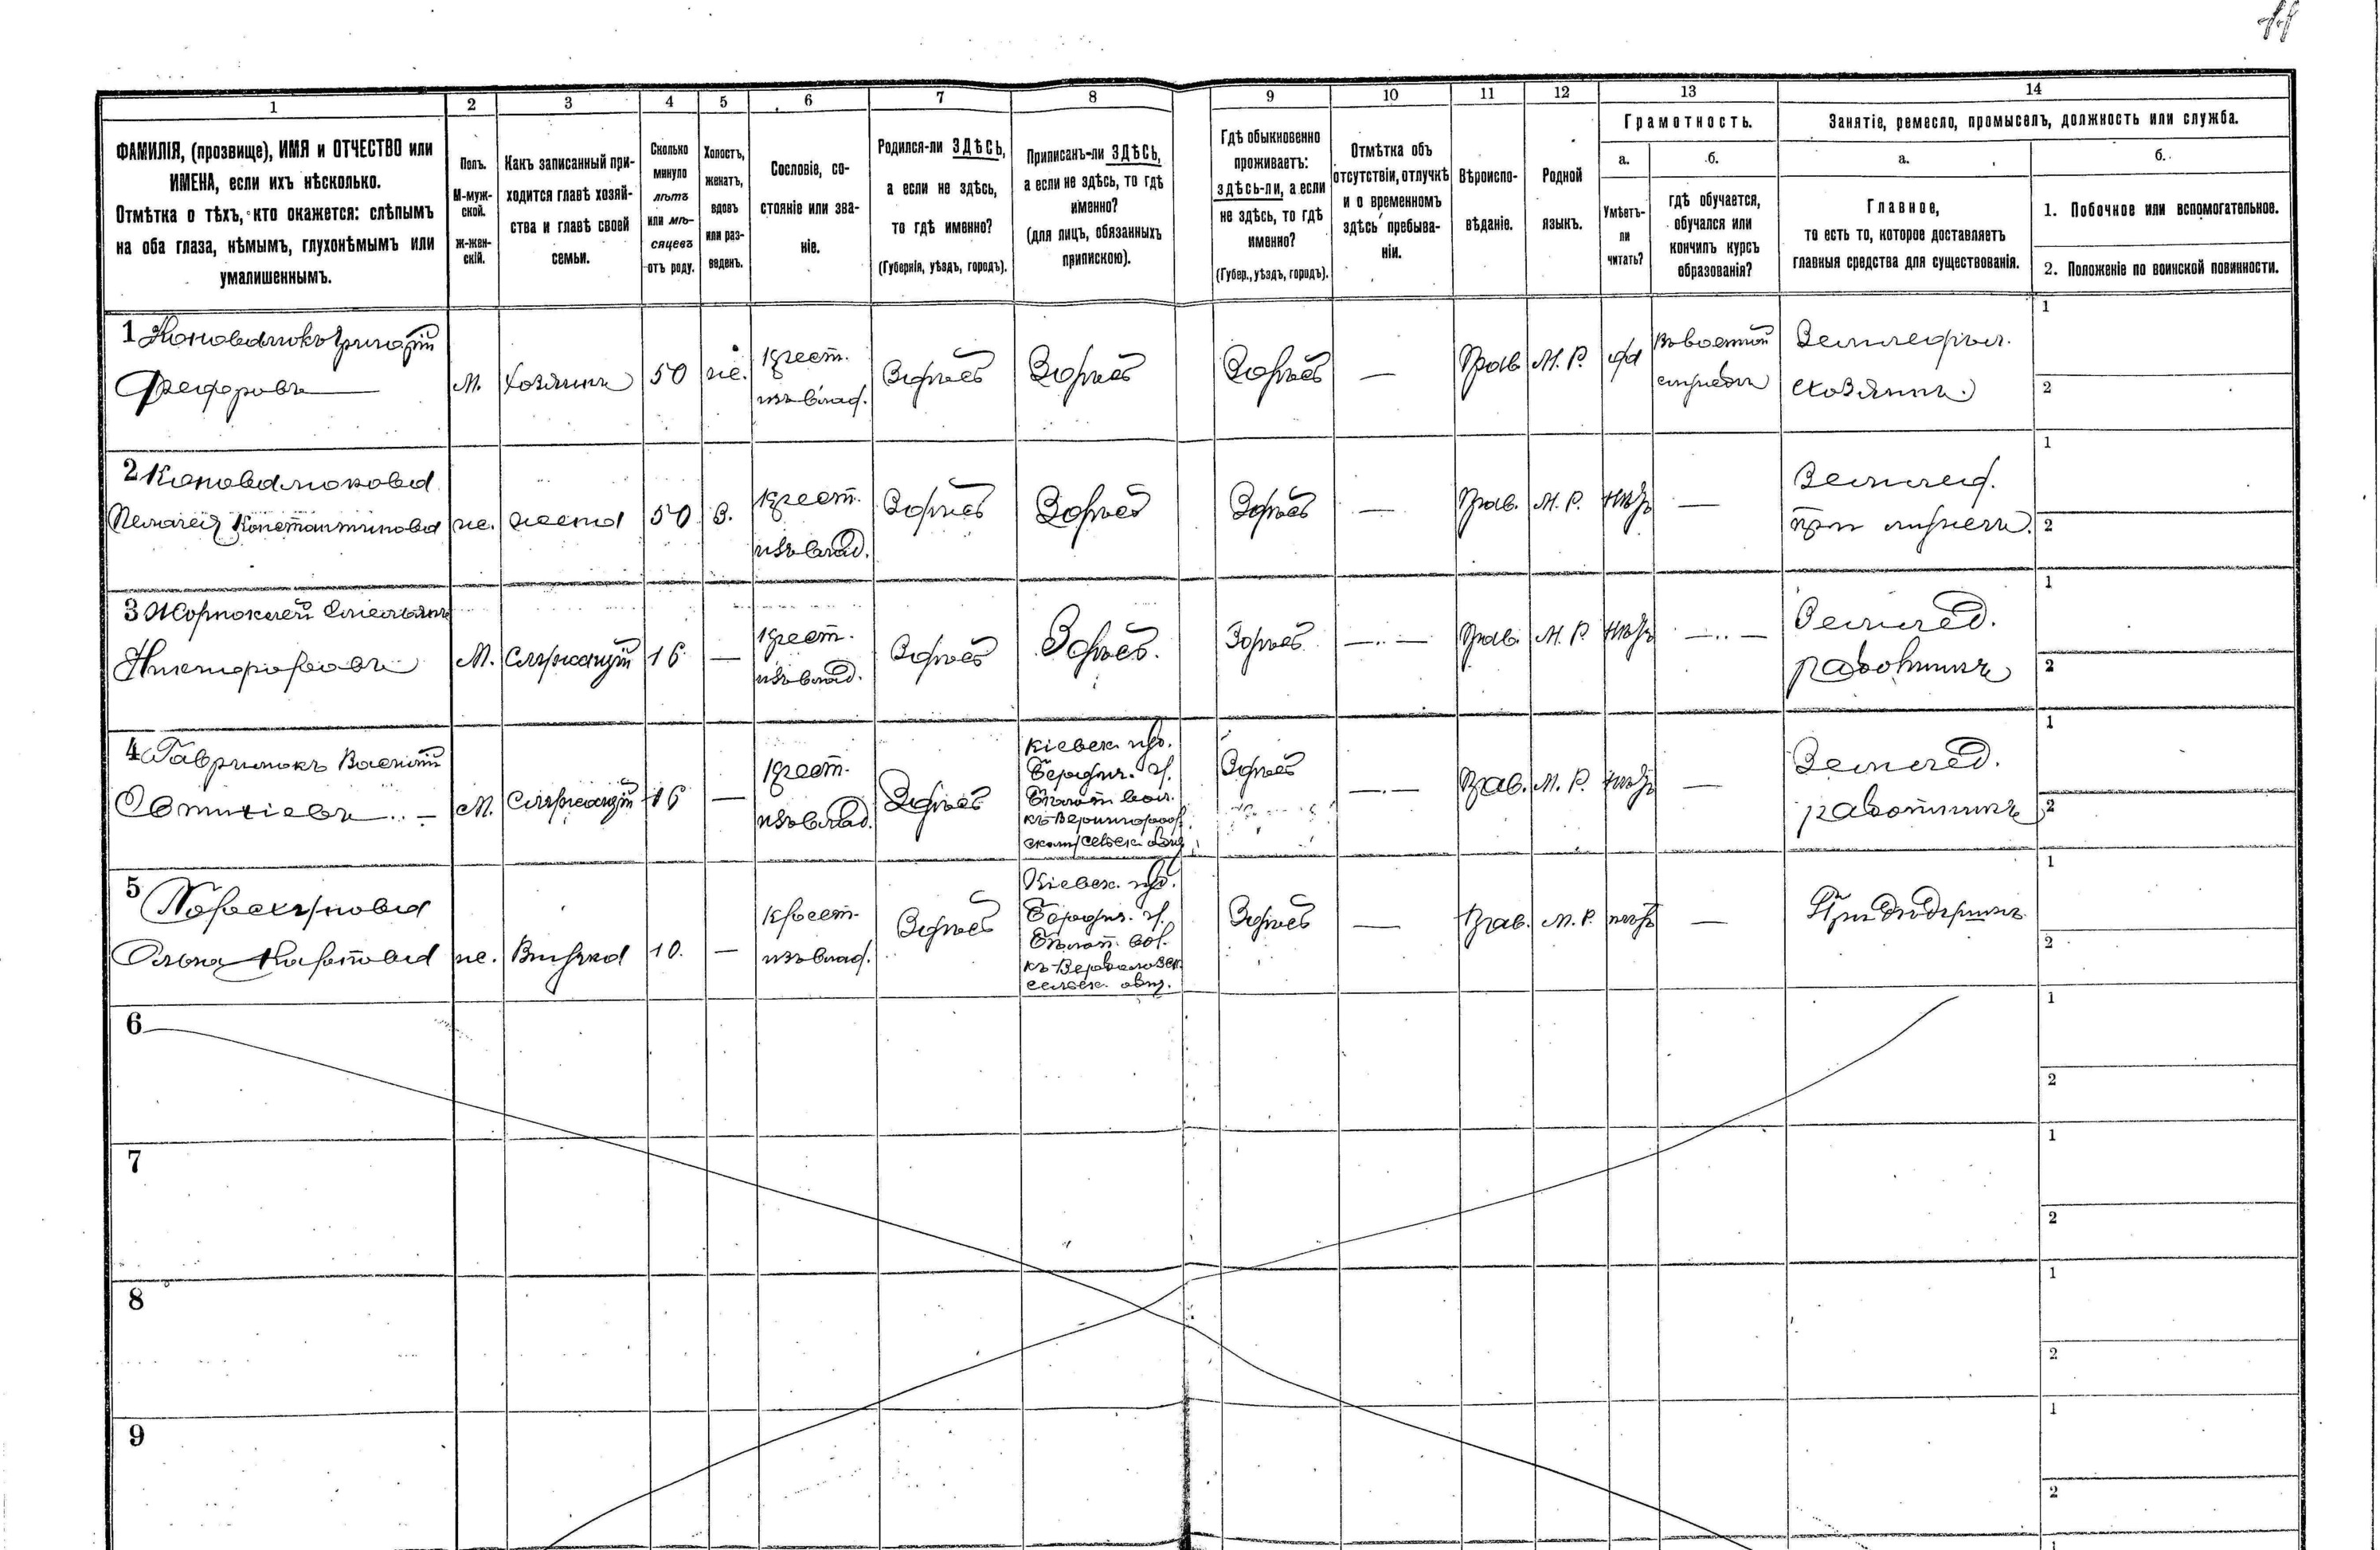 1 2 3 4 5 6 7 8 9 10 11 12 13 14
ФАМИЛІЯ, (прозвище), ИМЯ и ОТЧЕСТВО или
ИМЕНА, если ихъ нѣсколько.
Отмѣтка о тѣхъ, кто окажется: слѣпымъ
на оба глаза, нѣмымъ, глухонѣмымъ или
умалишеннымъ.
Полъ.
М-муж-
ской.
ж-жен-
скій.
Какъ записанный при-
ходится главѣ хозяй-
ства и главѣ своей
семьи.
Сколько
минуло
лѣтъ
или мѣ-
сяцевъ
отъ роду.
Холостъ,
женатъ,
вдовъ
или раз-
веденъ.
Сословіе, со-
стояніе или зва-
ніе.
Родился-ли ЗДѢСЬ,
а если не здѣсь,
то гдѣ именно?
(Губернія, уѣздъ, городъ).
Приписанъ-ли ЗДѢСЬ,
а если не здѣсь, то гдѣ
именно?
(для лицъ, обязанныхъ
припискою).
Гдѣ обыкновенно
проживаетъ:
здѣсь-ли, а если
не здѣсь, то гдѣ
именно?
(Губер., уѣздъ, городъ).
Отмѣтка объ
отсутствіи, отлучкѣ
и о временномъ
здѣсь пребыва-
ніи.
Вѣроиспо-
вѣданіе.
Родной
языкъ.
Грамотность.
а.
Умѣетъ-
ли
читать?
б.
гдѣ обучается,
обучался или
кончилъ курсъ
образованія?
Занятіе, ремесло, промыселъ, должность или служба.
а.
Главное,
то есть то, которое доставляетъ
главныя средства для существованія.
б.
1. Побочное или вспомогательное.
2. Положеніе по воинской повинности.
1 Коновалюкъ Григорій
Федоровъ
М. хозяинъ 50 ж. крест.
изъ влад. Здѣсь Здѣсь Здѣсь — Прав. М. Р. да
Земледѣл.
хозяинъ
1
2
2 Коновалюкова
Пелагея Константинова
ж. жена 50 З. крест.
изъ влад. Здѣсь Здѣсь Здѣсь — Прав. М. Р. нѣтъ —
Землед.
при мужѣ.
1
2
3
Никифоровъ
М. Служащій 16 — крест.
изъ влад. Здѣсь Здѣсь. Здѣсь —.— Прав. М. Р. нѣтъ —..—
Землед.
работникъ
1
2
4 Гаврилюкъ Василій
Евтихіевъ
М. Служащій 16 — крест.
изъ влад. Здѣсь
Кіевск. губ.
Бердич. у.
Бѣлоп. вол.
къ
сельск. общ.
Здѣсь —.— Прав. М. Р. нѣтъ —
Землед.
работникъ
1
2
5
Олена Карпова
ж. Внучка 10. — крест.
изъ влад. Здѣсь
Кіевск. губ.
Бердич. у.
Бѣлоп. вол.
къ
сельск. общ.
Здѣсь — Прав. М. Р. нѣтъ —
При
1
2
6
1
2
7
1
2
8
1
2
9
1
2
1